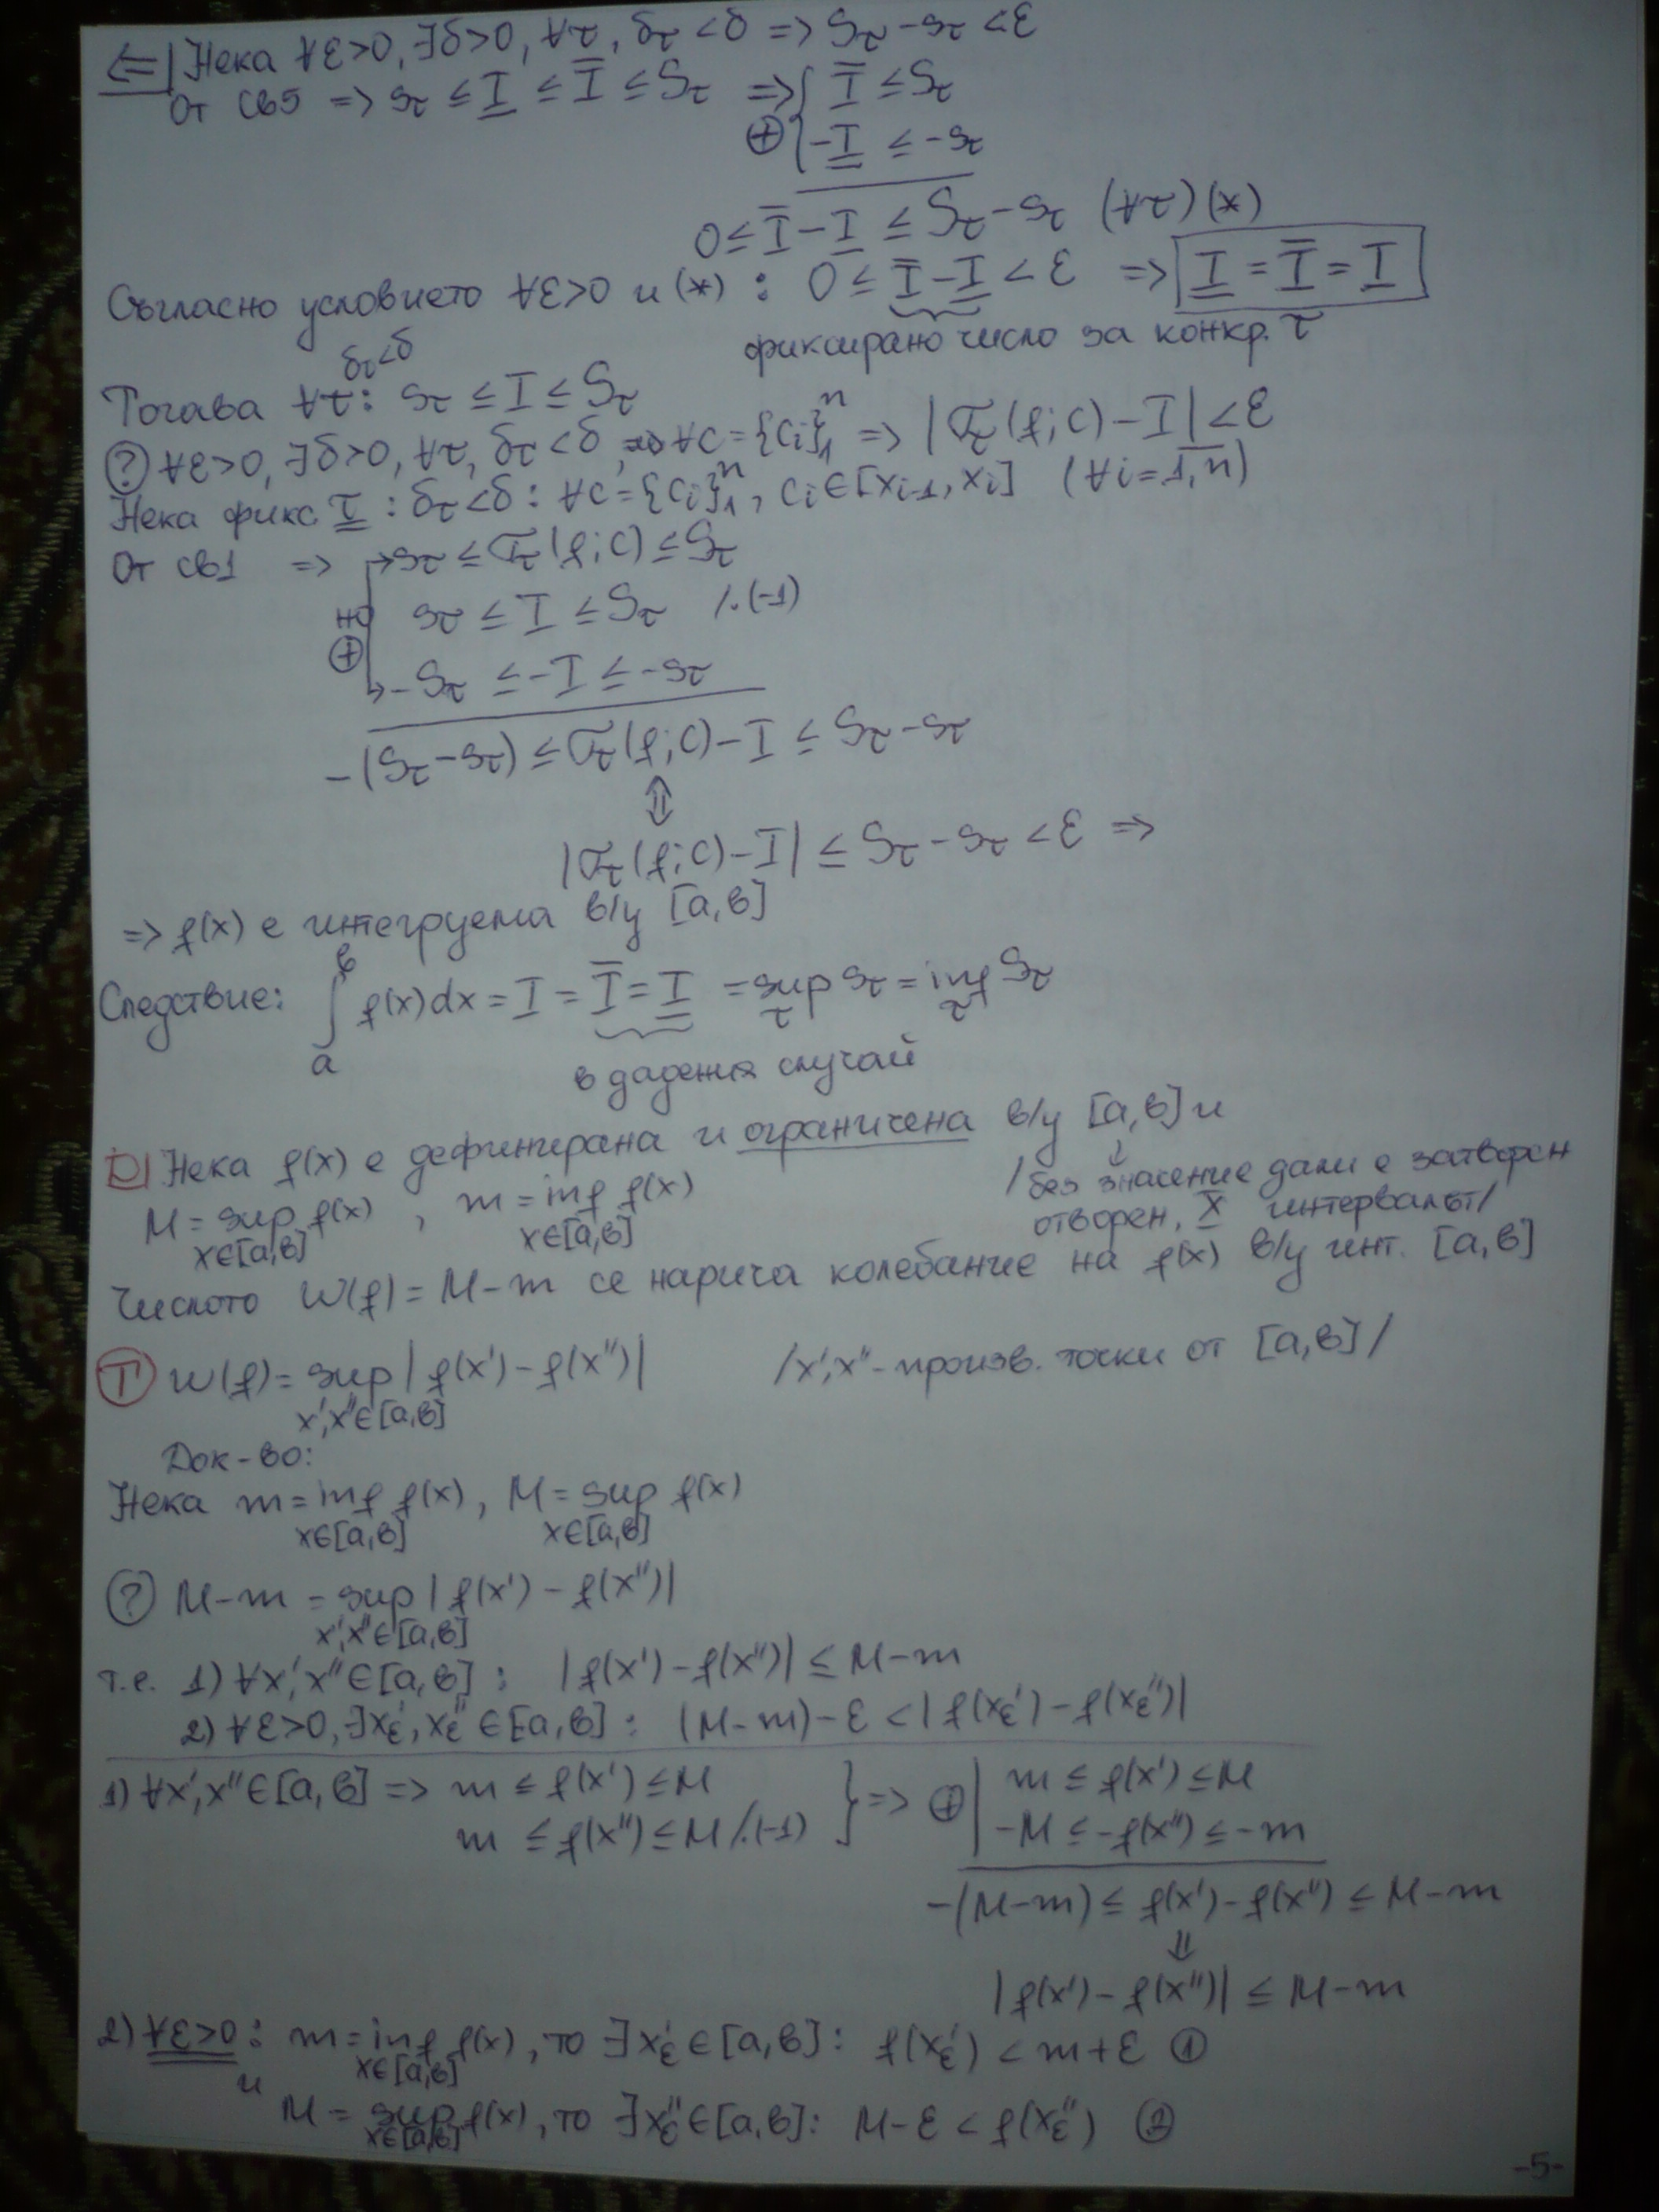 ⇐| Нека ∀ε>0, ∃δ>0, ∀τ, δτ<δ => Sτ-sτ<ε
От св5 => sτ ≤ I̲ ≤ Ī ≤ Sτ => { Ī ≤ Sτ
⊕ { -I̲ ≤ -sτ
0 ≤ Ī - I̲ ≤ Sτ - sτ (∀τ) (*)
Съгласно условието ∀ε>0 и (*) : 0 ≤ Ī - I̲ < ε => I̲ = Ī = I
фиксирано число за конкр. τ
δτ<δ
Тогава ∀τ: sτ ≤ I ≤ Sτ
? ∀ε>0, ∃δ>0, ∀τ, δτ<δ, ∀c = {ci}₁ⁿ => |στ(f;c) - I| < ε
Нека фикс. τ : δτ<δ : ∀c = {ci}₁ⁿ, ci ∈ [xi-1, xi] (∀i = 1,n)
От св1 => sτ ≤ στ(f;c) ≤ Sτ
но sτ ≤ I ≤ Sτ /.(-1)
⊕ -Sτ ≤ -I ≤ -sτ
-(Sτ-sτ) ≤ στ(f;c) - I ≤ Sτ - sτ
⇕
|στ(f;c) - I| ≤ Sτ - sτ < ε =>
=> f(x) е интегруема в/у [a,b]
Следствие: ∫ₐᵇ f(x)dx = I = Ī = I̲ = sup sτ = inf Sτ
τ τ
в дадения случай
D| Нека f(x) е дефинирана и ограничена в/у [a,b] и
/без значение дали е затворен
M = sup f(x), m = inf f(x)
x∈[a,b] x∈[a,b]
отворен, X интервалът/
Числото ω(f) = M - m се нарича колебание на f(x) в/у инт. [a,b]
T ω(f) = sup |f(x') - f(x'')| /x',x'' - произв. точки от [a,b]/
x',x''∈[a,b]
Док-во:
Нека m = inf f(x), M = sup f(x)
x∈[a,b] x∈[a,b]
? M - m = sup |f(x') - f(x'')|
x',x''∈[a,b]
т.е. 1) ∀x',x''∈[a,b] : |f(x') - f(x'')| ≤ M - m
2) ∀ε>0, ∃xε', xε''∈[a,b] : (M-m) - ε < |f(xε') - f(xε'')|
1) ∀x',x''∈[a,b] => m ≤ f(x') ≤ M } => ⊕ | m ≤ f(x') ≤ M
m ≤ f(x'') ≤ M /.(-1) -M ≤ -f(x'') ≤ -m
-(M-m) ≤ f(x') - f(x'') ≤ M - m
⇓
|f(x') - f(x'')| ≤ M - m
2) ∀ε>0 : m = inf f(x), то ∃xε'∈[a,b] : f(xε') < m+ε ①
x∈[a,b]
и
M = sup f(x), то ∃xε''∈[a,b] : M-ε < f(xε'') ②
x∈[a,b]
-5-